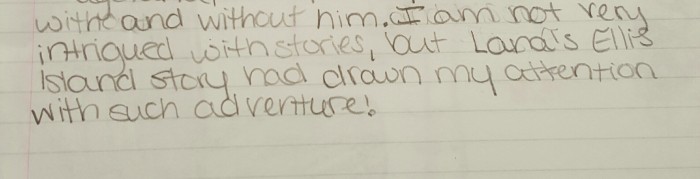 with and without him. I am not very
intrigued with stories, but Lana's Ellis
Island story had drawn my attention
with such adventure!